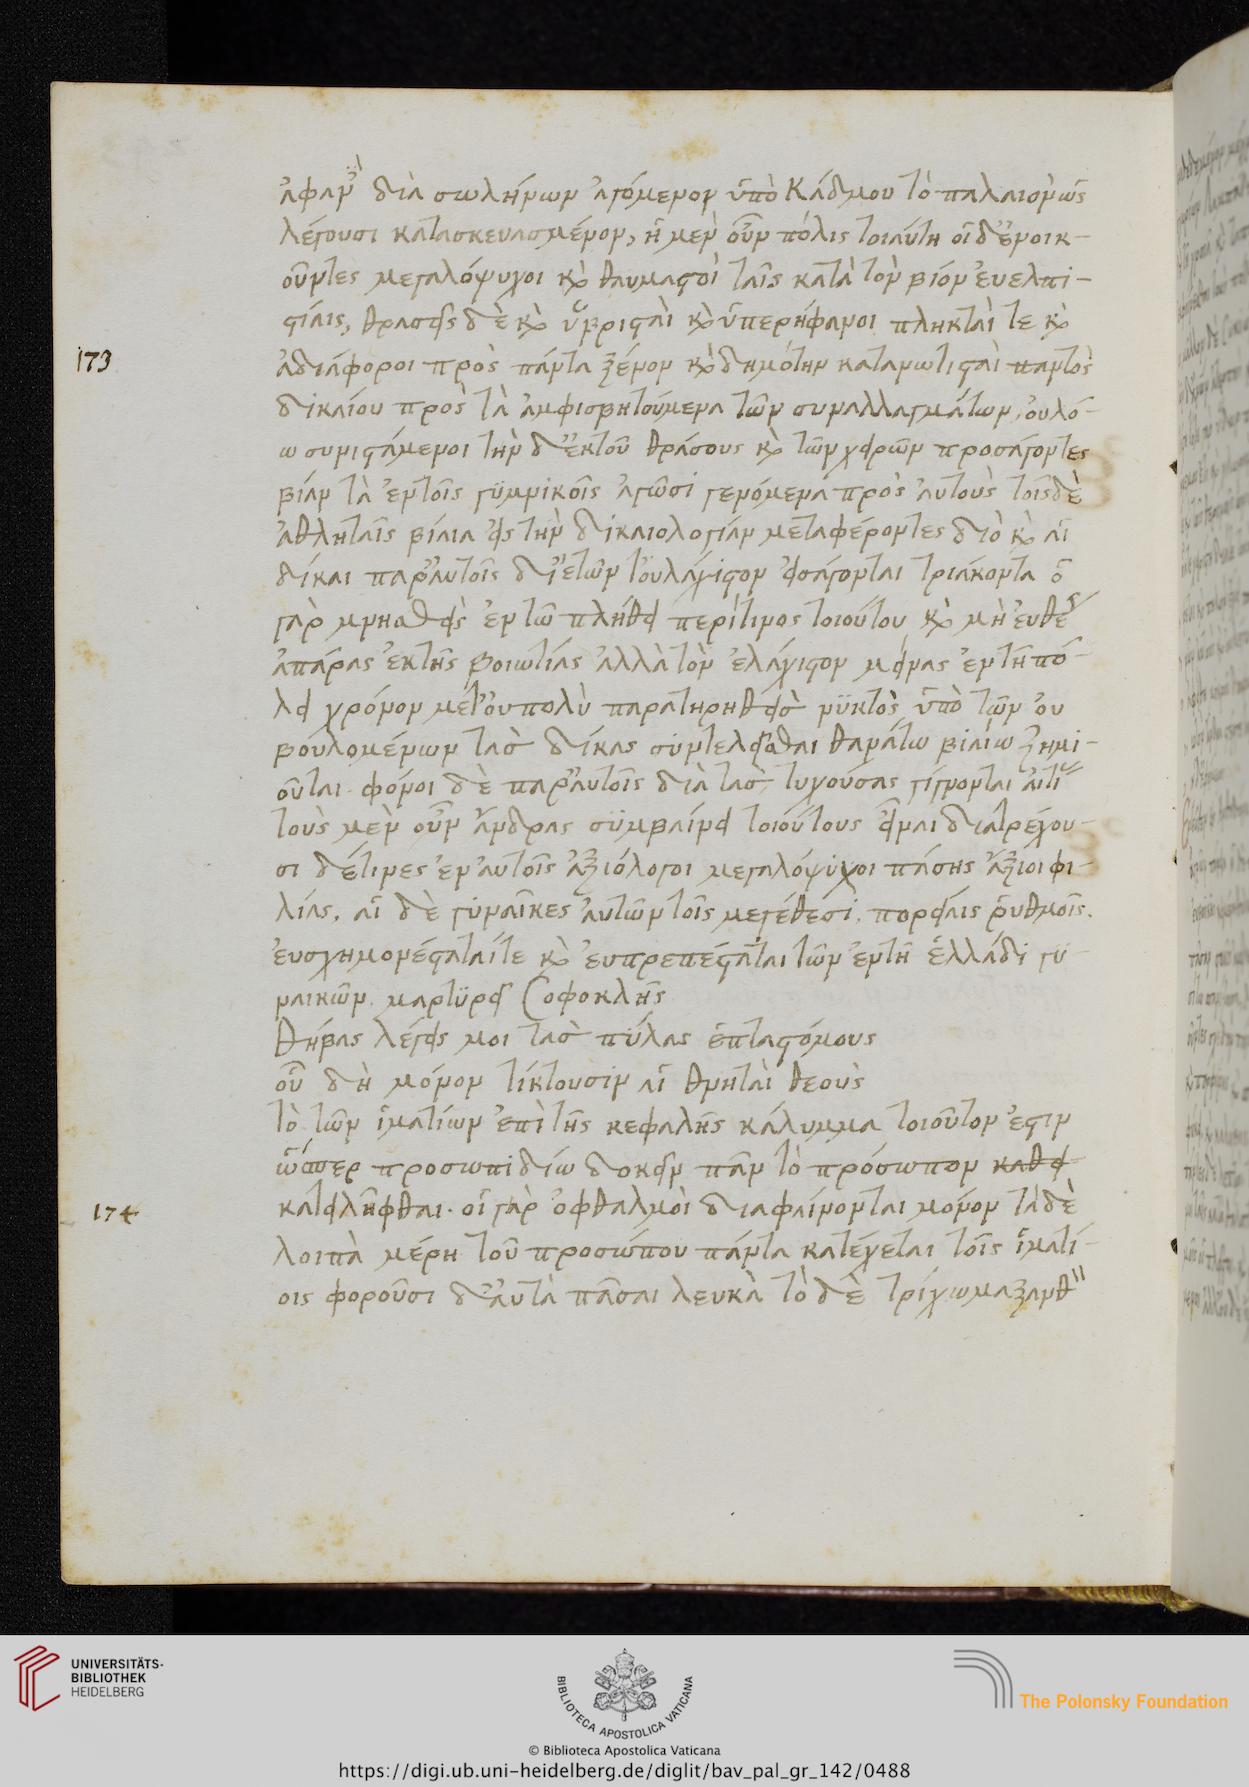 ἀφανὲς διὰ σωλήνων ἀγόμενον ὑπὸ Κάδμου τὸ παλαιὸν ὡς
λέγουσι κατασκευασμένον, ἡ μὲν οὖν πόλις τοιαύτη οἱ δ' ἐνοικ-
οῦντες μεγαλόψυχοι καὶ θαυμαστοὶ ταῖς κατὰ τὸν βίον εὐελπι-
στίαις, θρασεῖς δὲ καὶ ὑβρισταὶ καὶ ὑπερήφανοι πλῆκται τε καὶ
173
ἀδιάφοροι πρὸς πάντα ξένον καὶ δημότην κατανωτισταὶ παντὸς
δικαίου πρὸς τὰ ἀμφισβητούμενα τῶν συναλλαγμάτων, οὐ λό-
ω συνιστάμενοι τὴν δ' ἐκ τοῦ θράσους καὶ τῶν χειρῶν προσάγοντες
βίαν τὰ ἐν τοῖς γυμνικοῖς ἀγῶσι γενόμενα πρὸς αὐτοὺς τοῖς δὲ
ἀθληταῖς βίαια εἰς τὴν δικαιολογίαν μεταφέροντες διὸ καὶ αἱ
δίκαι παρ' αὐτοῖς δι' ἐτῶν τοὐλάχιστον εἰσάγονται τριάκοντα ὁ
γὰρ μνησθεὶς ἐν τῶ πλήθει περίτινος τοιούτου καὶ μὴ εὐθέως
ἀπάρας ἐκ τῆς βοιωτίας ἀλλὰ τὸν ἐλάχιστον μείνας ἐν τῆ πό-
λει χρόνον μετ' οὐ πολὺ παρατηρηθεὶς νυκτὸς ὑπὸ τῶν οὐ
βουλομένων τὰς δίκας συντελεῖσθαι θανάτω βιαίω ζημι-
οῦται. φόνοι δὲ παρ' αὐτοῖς διὰ τὰς τυχούσας γίγνονται αἰτίας
τοὺς μὲν οὖν ἄνδρας συμβαίνει τοιούτους εἶναι διατρέχου-
σι δέ τινες ἐν αὐτοῖς ἀξιόλογοι μεγαλόψυχοι πάσης ἄξιοι φι-
λίας, αἱ δὲ γυναῖκες αὐτῶν τοῖς μεγέθεσι, πορείαις ῥυθμοῖς.
εὐσχημονέσταταί τε καὶ εὐπρεπέσταται τῶν ἐν τῆ ἑλλάδι γυ-
ναικῶν. μαρτυρεῖ Σοφοκλῆς
Θήβας λέγεις μοι τὰς πύλας ἑπταστόμους
οὗ δὴ μόνον τίκτουσιν αἱ θνηταὶ θεούς
τὸ τῶν ἱματίων ἐπὶ τῆς κεφαλῆς κάλυμμα τοιοῦτον ἐστιν
ὥσπερ προσωπιδίω δοκεῖν πᾶν τὸ πρόσωπον καθει
174
κατειλῆφθαι. οἱ γὰρ ὀφθαλμοὶ διαφαίνονται μόνον τὰ δὲ
λοιπὰ μέρη τοῦ προσώπου πάντα κατέχεται τοῖς ἱματί-
οις φοροῦσι δ' αὐτὰ πᾶσαι λευκὰ τὸ δὲ τρίχωμα ξανθὸν
UNIVERSITÄTS-
BIBLIOTHEK
HEIDELBERG
BIBLIOTECA APOSTOLICA VATICANA
The Polonsky Foundation
© Biblioteca Apostolica Vaticana
https://digi.ub.uni-heidelberg.de/diglit/bav_pal_gr_142/0488